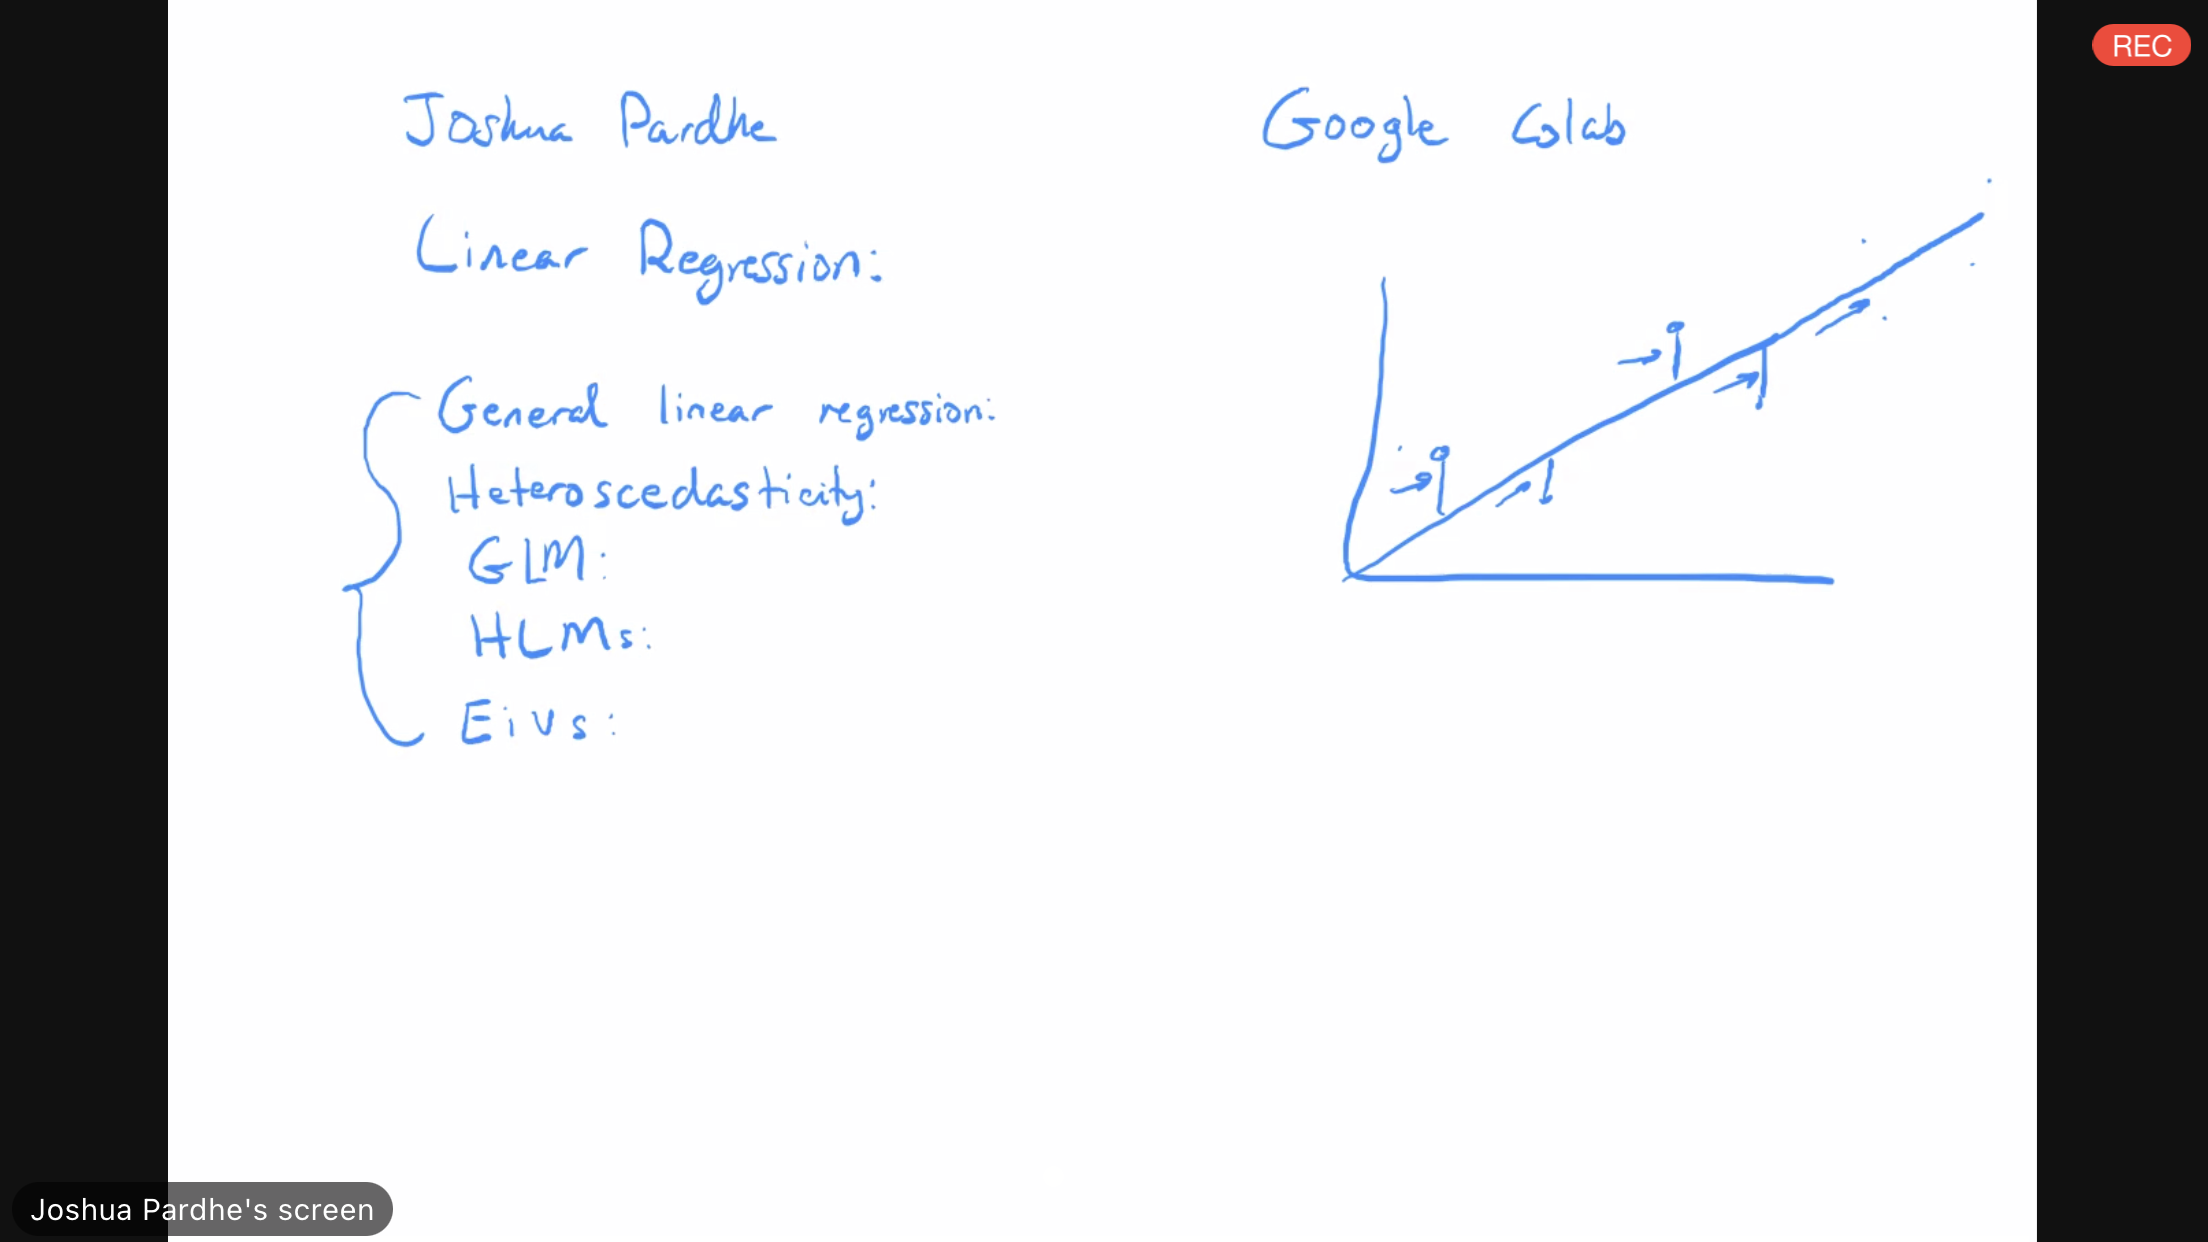 REC
Joshua Pardhe
Google Colab
Linear Regression:
General linear regression:
Heteroscedasticity:
GLM:
HLMs:
Eivs:
Joshua Pardhe's screen